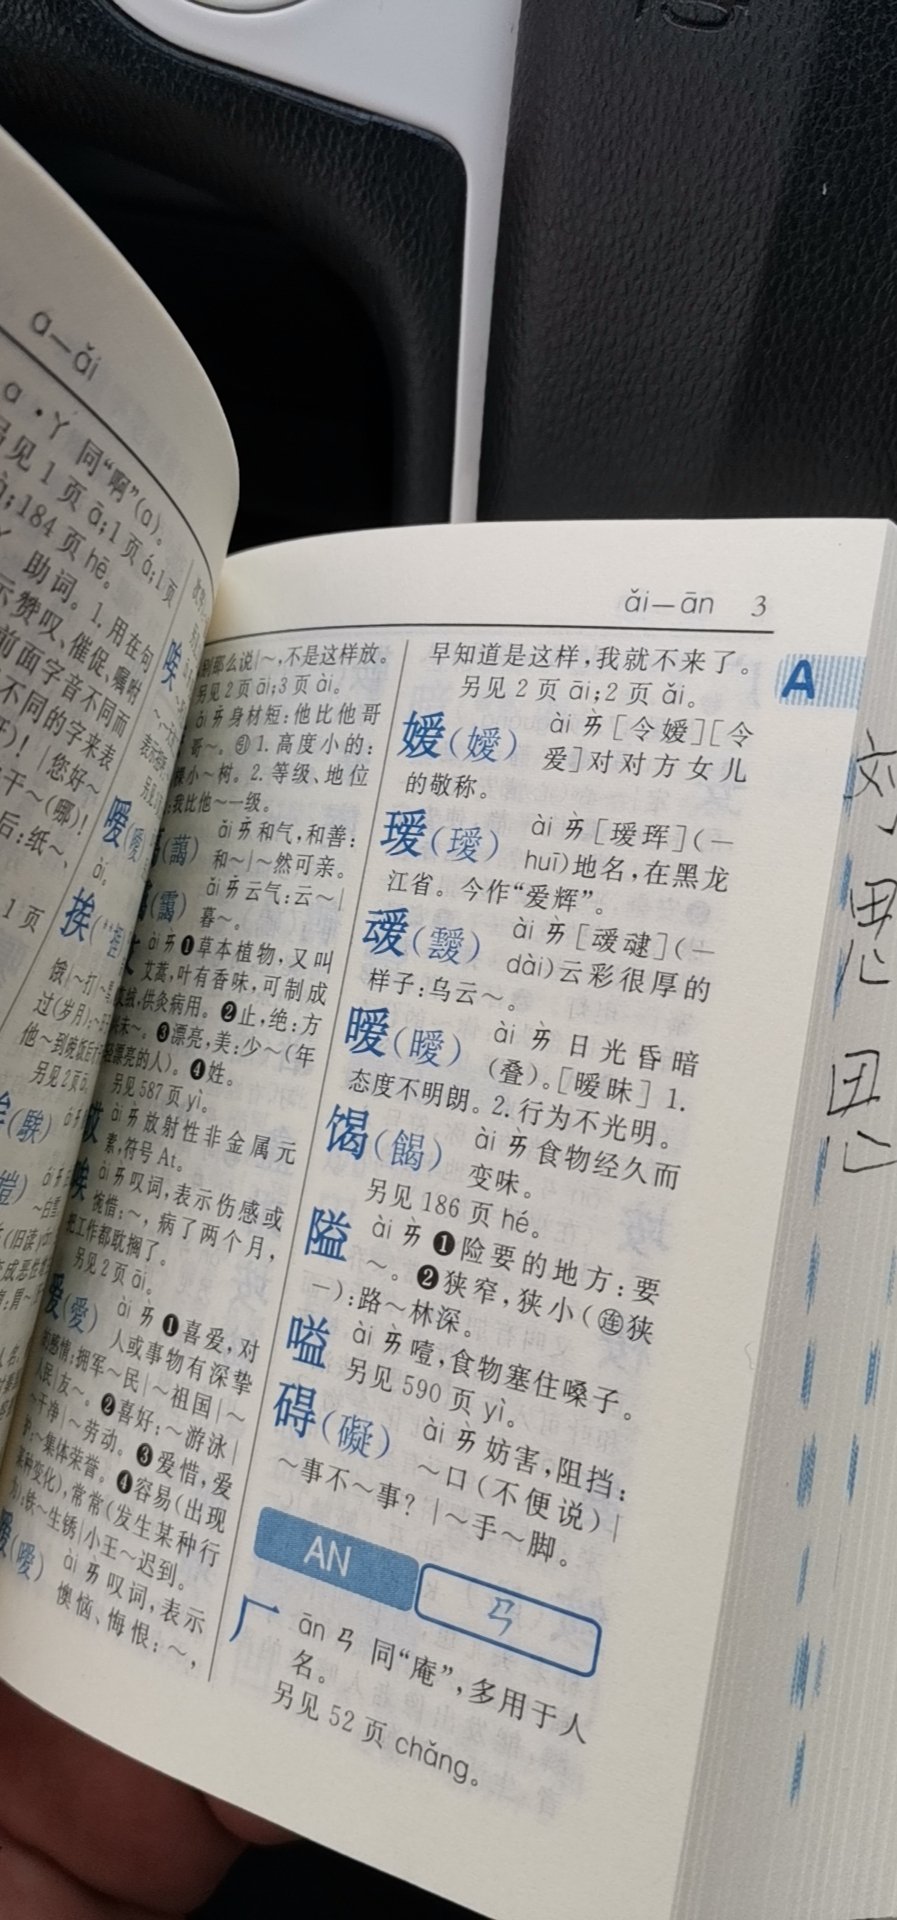 a—ǎi
a ·ㄚ 同“啊”(a)。
另见 1 页 ā;1 页 á;1 页
184 页 hē。
助词。1. 用在句
示赞叹、催促、嘱咐
前面字音不同而
不同的字来表
)! | 您好~
干~(哪)!
后:纸~、
1 页
唉
嗳(噯
ài。
挨(
饿|~打|
过(岁月):
他~到晚饭
另见 2 页
(騃)
ǎi—ān 3
别那么说|~,不是这样放。
另见 2 页 āi;3 页 ài。
ǎi ㄞ 身材短:他比他哥
哥~。㊂ 1. 高度小的:
棵小~树。2. 等级、地位
:我比他~一级。
(藹) ǎi ㄞ 和气,和善:
和~|~然可亲。
(靄) ǎi ㄞ 云气:云~|
暮~。
ài ㄞ ❶ 草本植物,又叫
艾蒿,叶有香味,可制成
艾绒,供灸病用。❷ 止,绝:方
兴未~。❸ 漂亮,美:少~(年
轻漂亮的人)。❹ 姓。
另见 587 页 yì。
ài ㄞ 放射性非金属元
素,符号 At。
唉 ài ㄞ 叹词,表示伤感或
惋惜:~,病了两个月,
把工作都耽搁了。
另见 2 页 āi。
爱(愛) ài ㄞ ❶ 喜爱,对
人或事物有深挚
的感情:拥军~民|~祖国|~
人民|友~。❷ 喜好:~游泳|
~干净|~劳动。❸ 爱惜,爱
护:~集体荣誉。❹ 容易(出现
某种变化),常常(发生某种行
为):铁~生锈|小王~迟到。
嗳(噯) ài ㄞ 叹词,表示
懊恼、悔恨:~,
早知道是这样,我就不来了。
另见 2 页 āi;2 页 ǎi。
嫒(嬡) ài ㄞ [令嫒][令
爱]对对方女儿
的敬称。
瑷(璦) ài ㄞ [瑷珲](—
huī)地名,在黑龙
江省。今作“爱辉”。
叆(靉) ài ㄞ [叆叇](—
dài)云彩很厚的
样子:乌云~。
暧(曖) ài ㄞ 日光昏暗
(叠)。[暧昧] 1.
态度不明朗。2. 行为不光明。
馤(餲) ài ㄞ 食物经久而
变味。
另见 186 页 hé。
隘 ài ㄞ ❶ 险要的地方:要
~。❷ 狭窄,狭小(㊣狭
—):路~林深。
嗌 ài ㄞ 噎,食物塞住嗓子。
另见 590 页 yì。
碍(礙) ài ㄞ 妨害,阻挡:
~口(不便说)|
~事不~事?|~手~脚。
AN ㄢ
厂 ān ㄢ 同“庵”,多用于人
名。
另见 52 页 chǎng。
A
刘
思
思